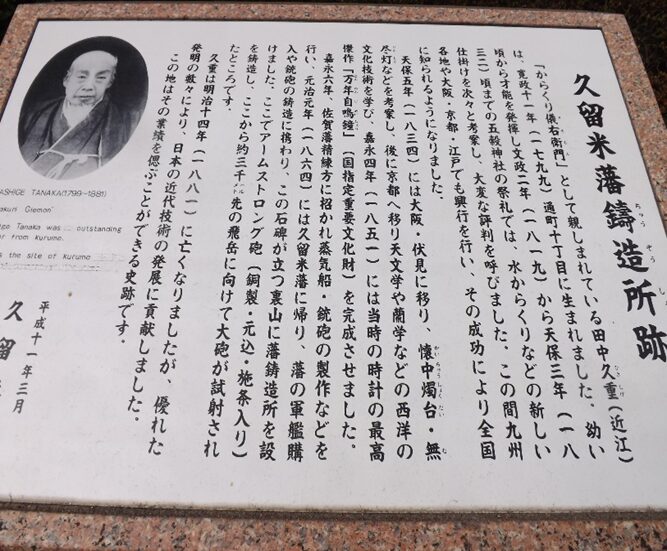 久留米藩鋳造所跡
ちゅうぞうし
「からくり儀右衛門」として親しまれている田中久重(近江)
ひさしげ
は、寛政十一年(一七九九)通町十丁目に生まれました。幼い
頃から才能を発揮し文政二年(一八一九)から天保三年(一八
三二)頃までの五穀神社の祭礼では、水からくりなどの新しい
仕掛けを次々と考案し、大変な評判を呼びました。この間九州
各地や大阪・京都・江戸でも興行を行い、その成功により全国
に知られるようになりました。
天保五年(一八三四)には大阪・伏見に移り、懐中燭台・無
かいちゅうしょくだい む
尽灯などを考案し、後に京都へ移り天文学や蘭学などの西洋の
じんとう
文化技術を学び、嘉永四年(一八五一)には当時の時計の最高
傑作「万年自鳴鐘」(国指定重要文化財)を完成させました。
嘉永六年、佐賀藩精練方に招かれ蒸気船・銃砲の製作などを
行い、元治元年(一八六四)には久留米藩に帰り、藩の軍艦購
入や銃砲の鋳造に携わり、この石碑が立つ裏山に藩鋳造所を設
けました。ここでアームストロング砲(鋼製・元込・施条入り)
を鋳造し、ここから約三千㍍先の飛岳に向けて大砲が試射され
たところです。
久重は明治十四年(一八八一)に亡くなりましたが、優れた
発明の数々により、日本の近代技術の発展に貢献しました。
この地はその業績を偲ぶことができる史跡です。
平成十一年三月
久留
ASHIGE TANAKA(1799-1881)
akuri Giemon'
ige Tanaka was outstanding
or from kurume.
s the site of kurume